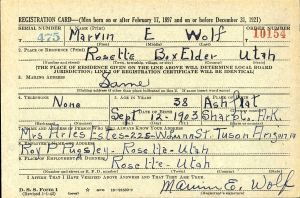 REGISTRATION CARD—(Men born on or after February 17, 1897 and on or before December 31, 1921)
SERIAL NUMBER 1. NAME (Print) ORDER NUMBER
475 Marvin E Wolf 10154
(First) (Middle) (Last)
2. PLACE OF RESIDENCE (Print)
Rosette Box Elder Utah
(Town, township, village, or city) (County) (State)
[THE PLACE OF RESIDENCE GIVEN ON THE LINE ABOVE WILL DETERMINE LOCAL BOARD
JURISDICTION; LINE 2 OF REGISTRATION CERTIFICATE WILL BE IDENTICAL]
3. MAILING ADDRESS
Same
4. TELEPHONE 5. AGE IN YEARS 6. PLACE OF BIRTH
None 38 Ash Flat
DATE OF BIRTH
Sept 12-1903 Sharp Co, Ark.
7. NAME AND ADDRESS OF PERSON WHO WILL ALWAYS KNOW YOUR ADDRESS
Mrs Estes-225- St. Tuson Arizona
8. EMPLOYER'S NAME AND ADDRESS
Roy P Pugsley- Rosette-Utah
9. PLACE OF EMPLOYMENT OR BUSINESS
Rosette-Utah
I AFFIRM THAT I HAVE VERIFIED ABOVE ANSWERS AND THAT THEY ARE TRUE.
D. S. S. Form 1
Marvin E. Wolf